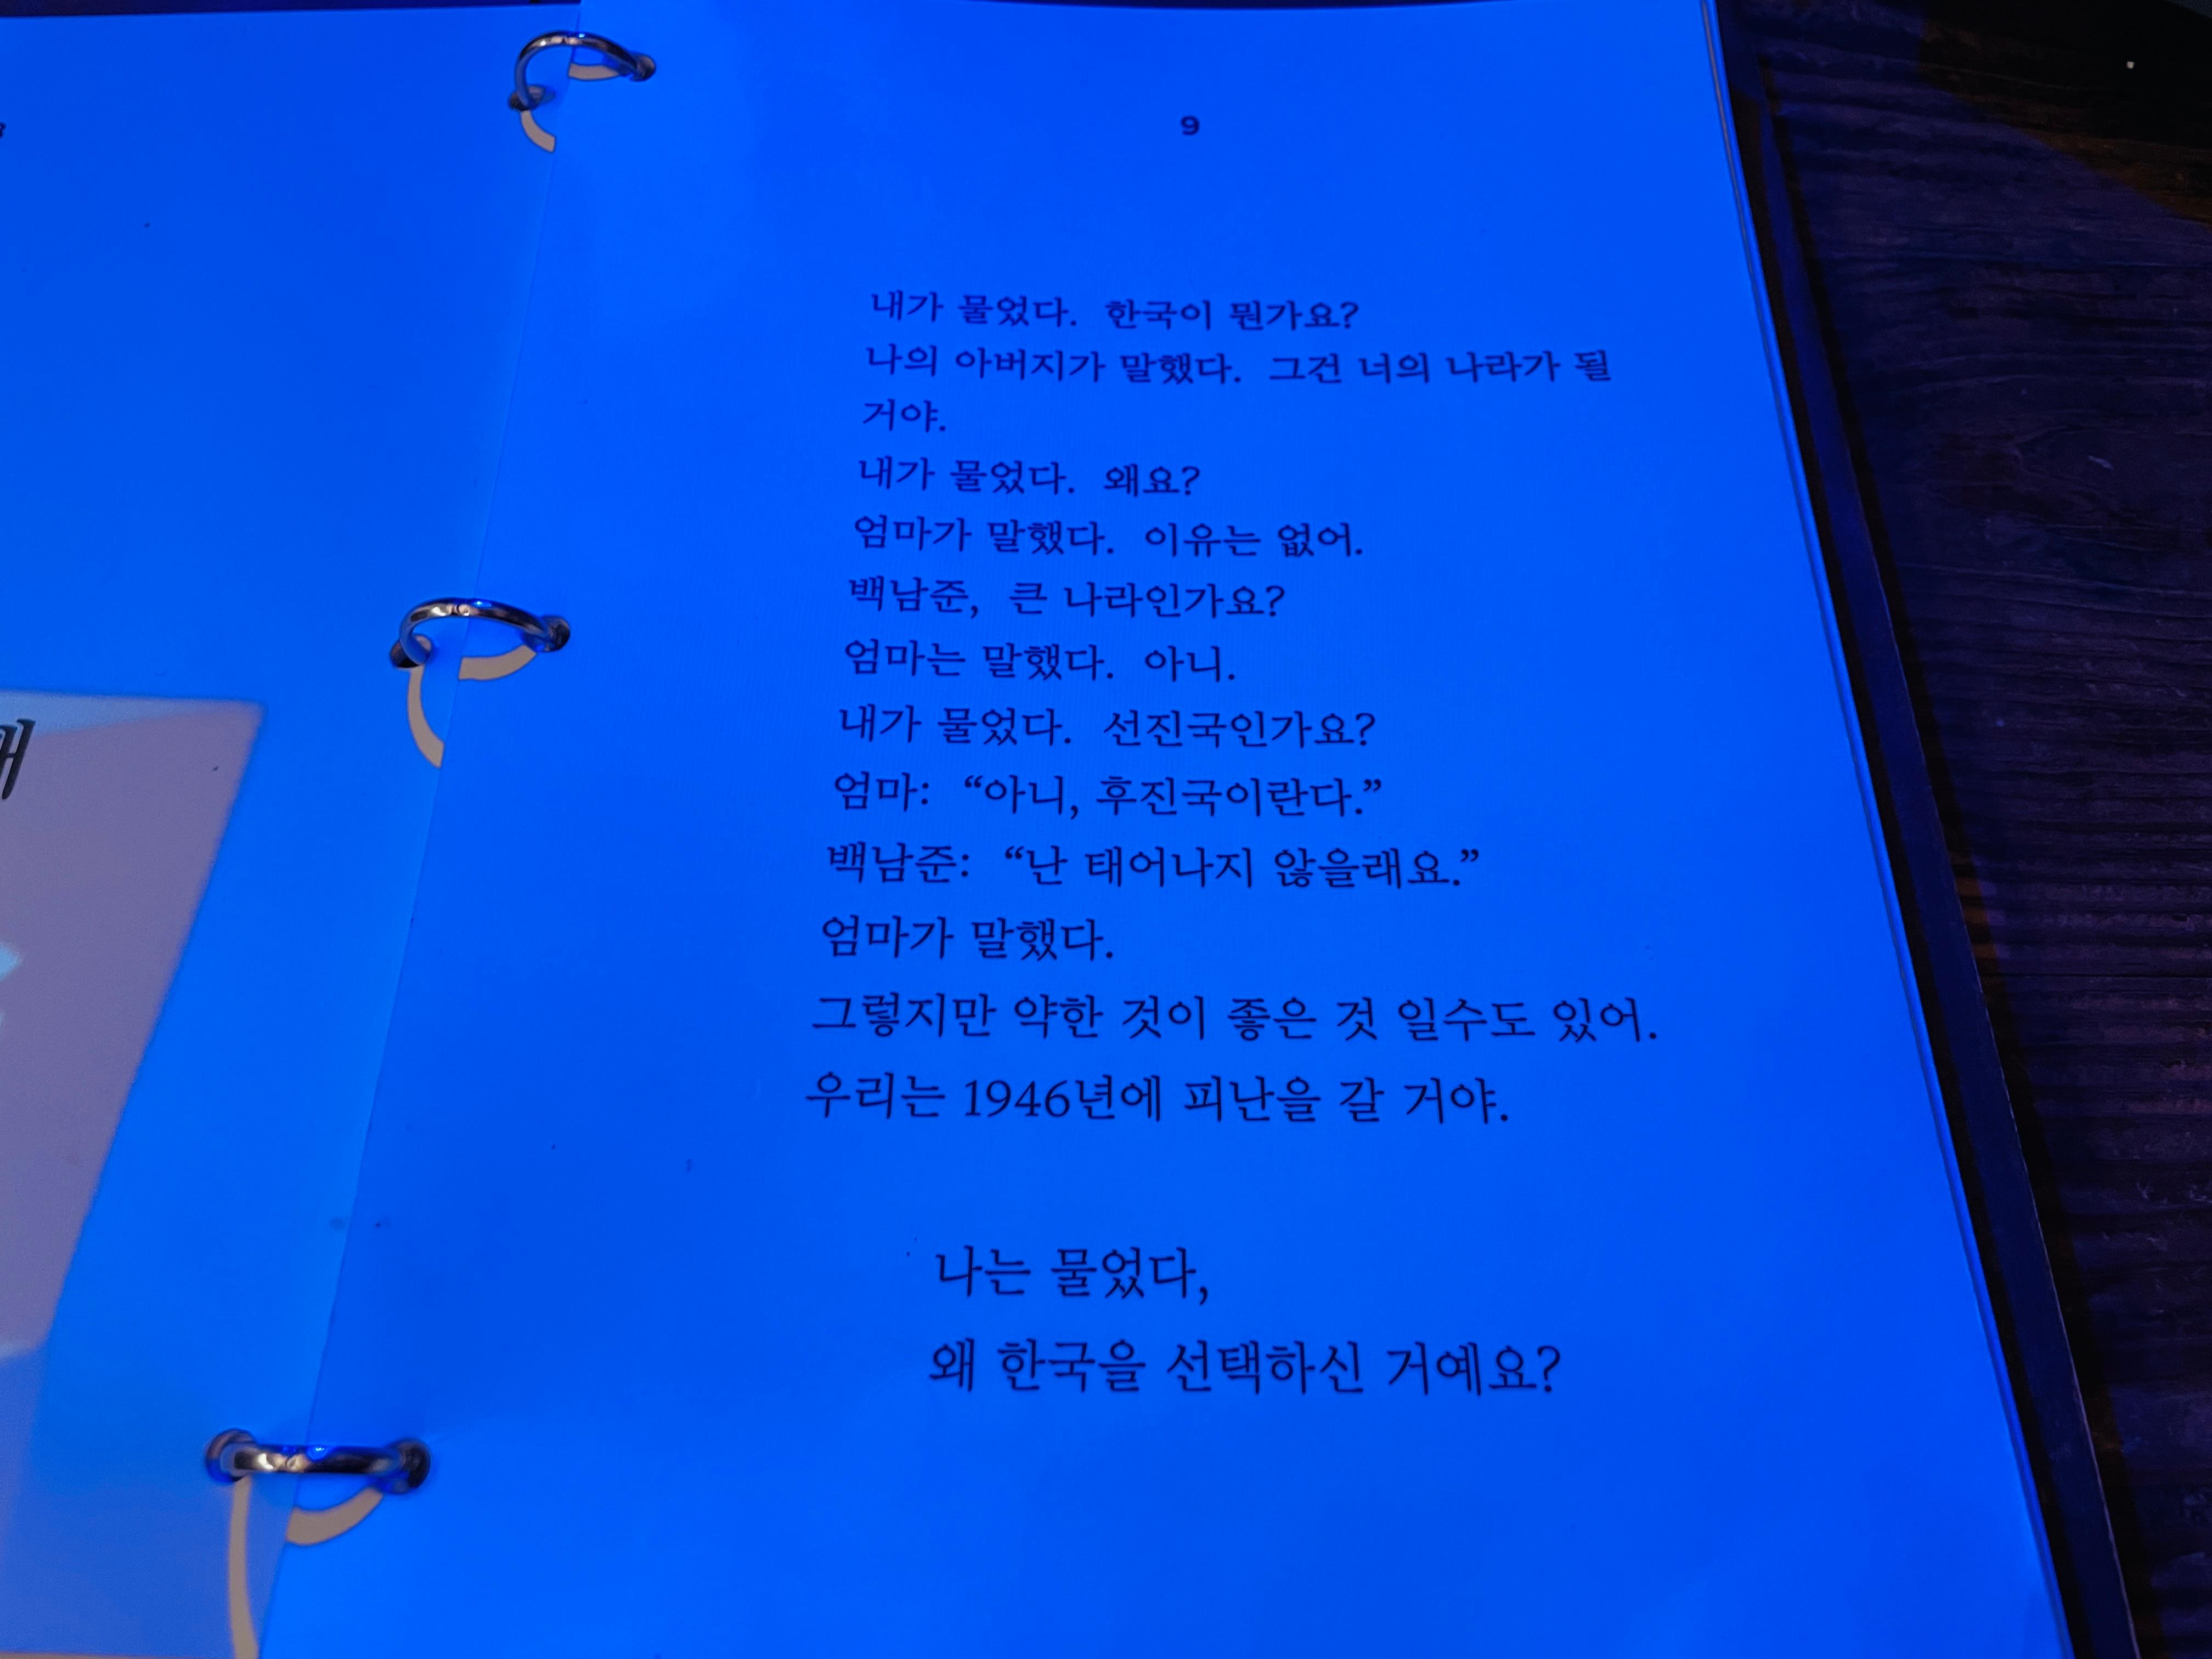 9
내가 물었다. 한국이 뭔가요?
나의 아버지가 말했다. 그건 너의 나라가 될
거야.
내가 물었다. 왜요?
엄마가 말했다. 이유는 없어.
백남준, 큰 나라인가요?
엄마는 말했다. 아니.
내가 물었다. 선진국인가요?
엄마: “아니, 후진국이란다.”
백남준: “난 태어나지 않을래요.”
엄마가 말했다.
그렇지만 약한 것이 좋은 것 일수도 있어.
우리는 1946년에 피난을 갈 거야.
나는 물었다,
왜 한국을 선택하신 거예요?